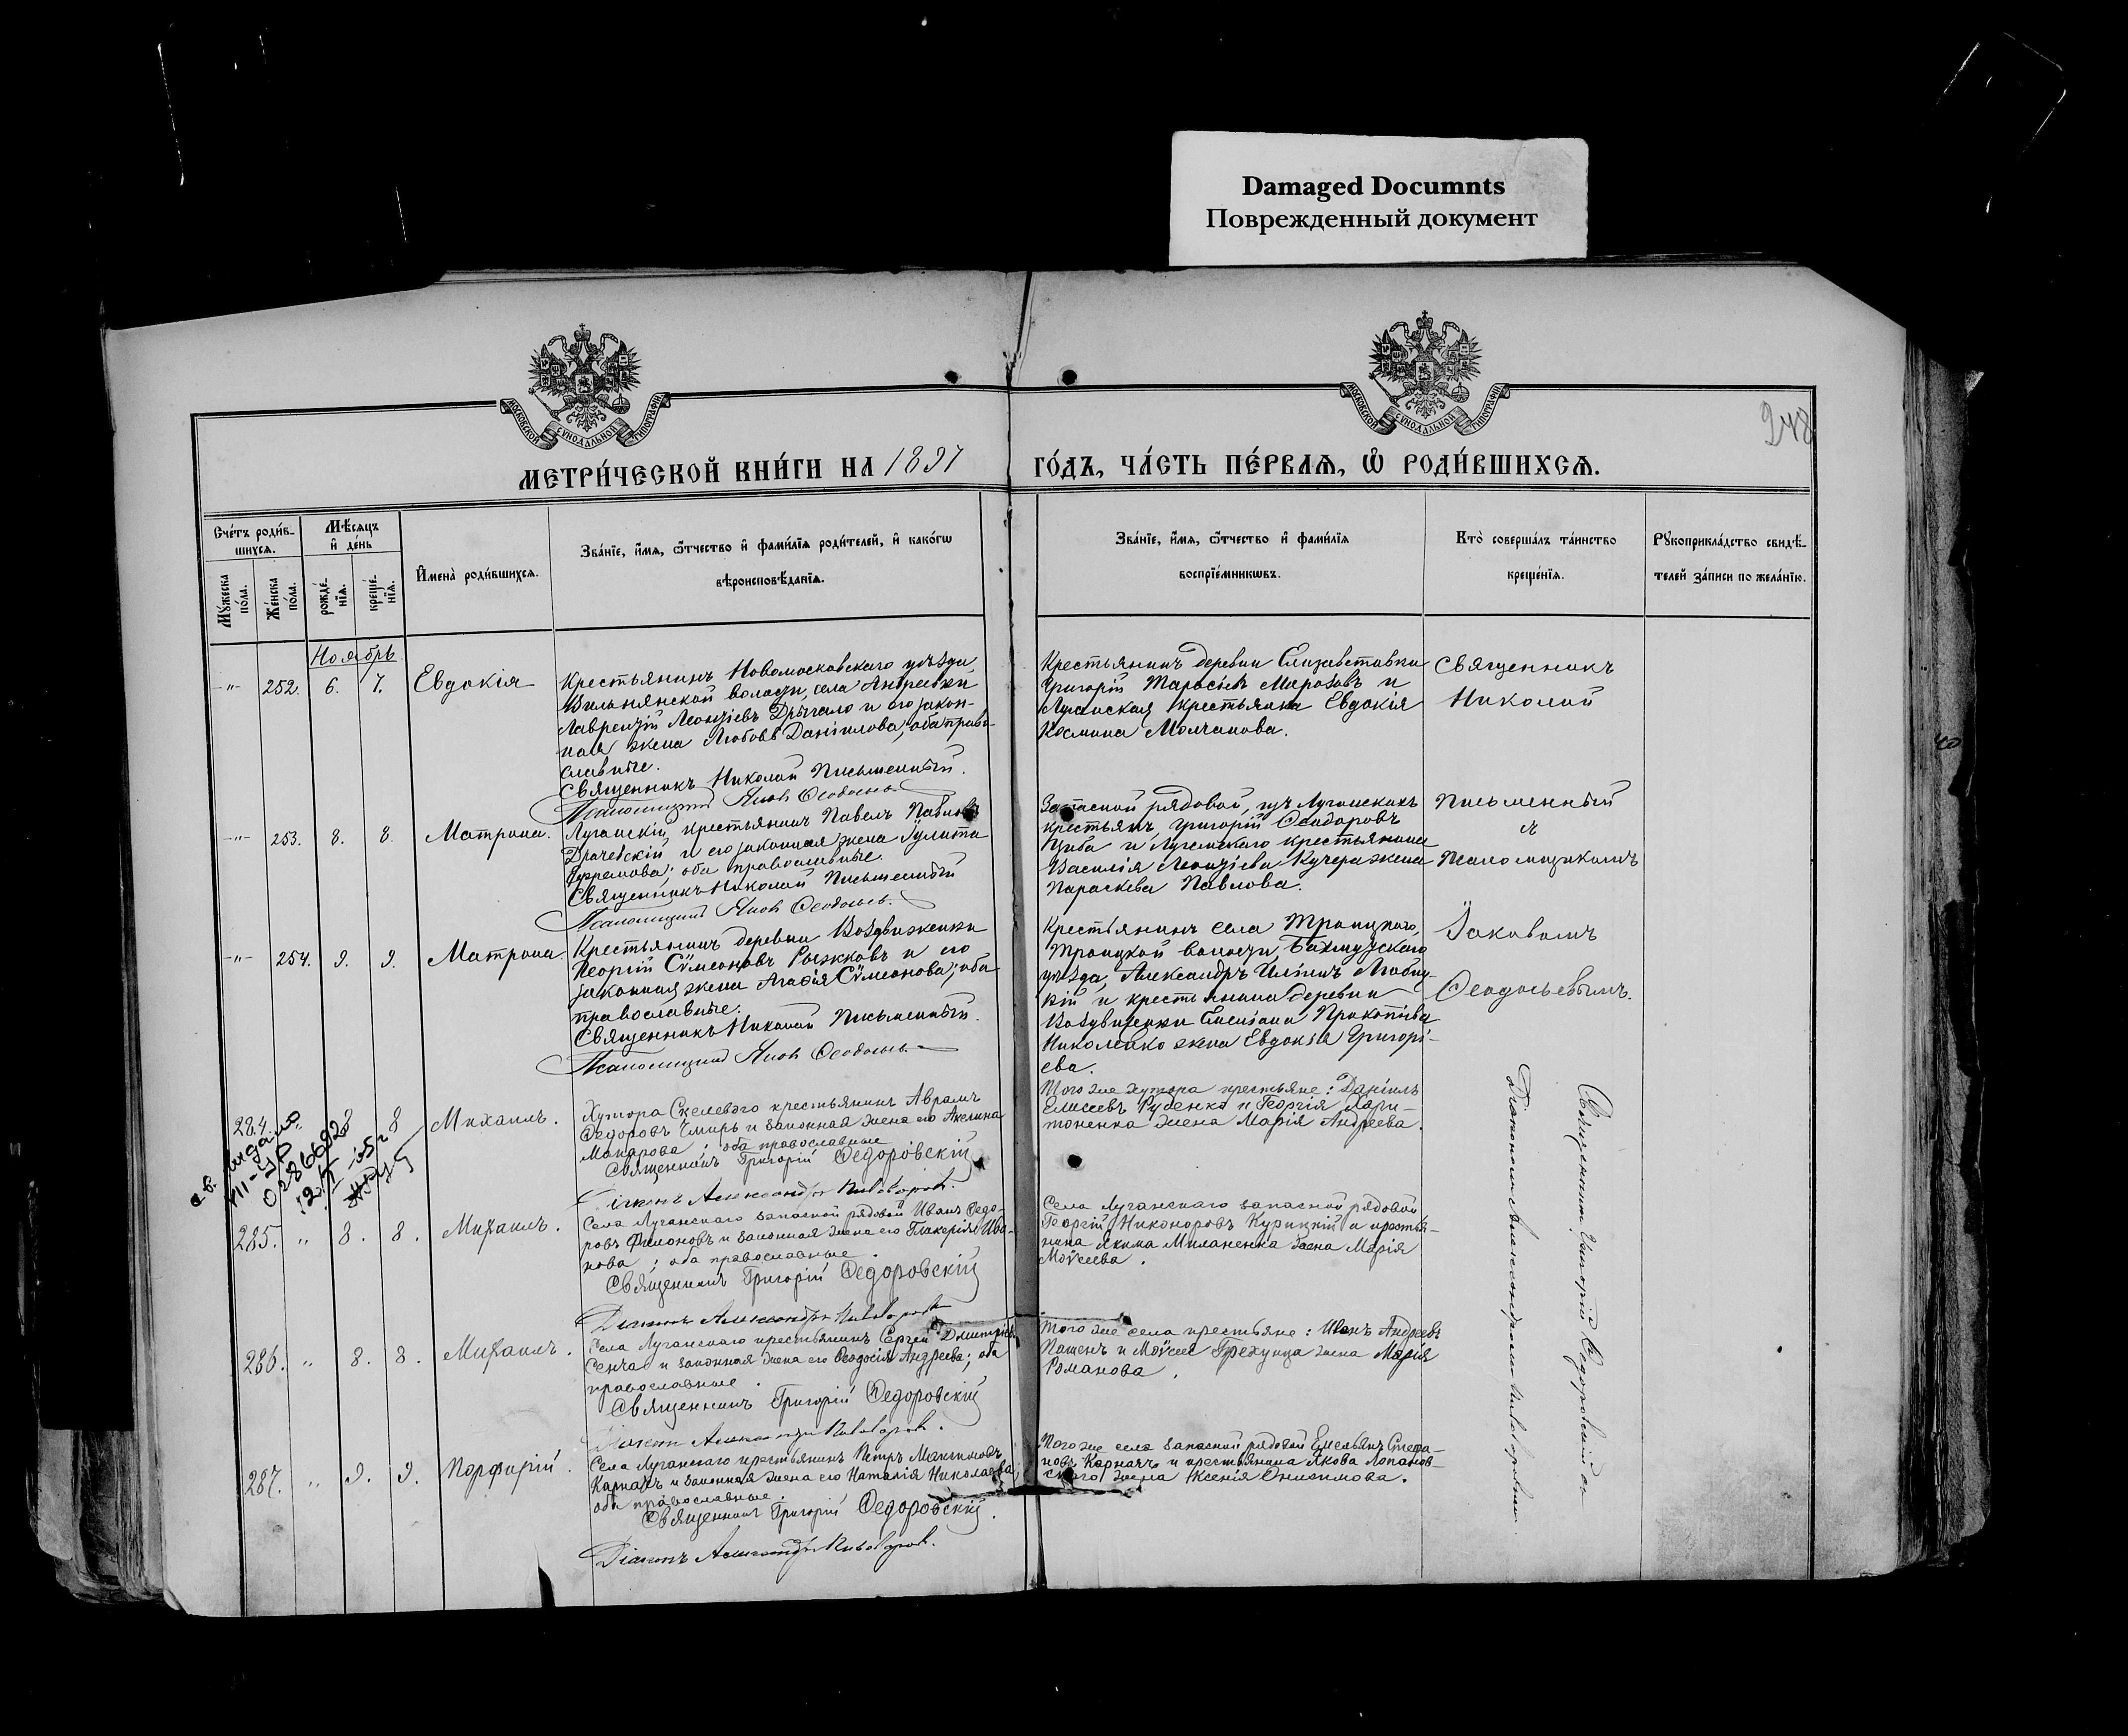 Damaged Documnts
Поврежденный документ
МОСКОВСКОЙ СУНОДАЛЬНОЙ ТИПОГРАФІИ
МОСКОВСКОЙ СУНОДАЛЬНОЙ ТИПОГРАФІИ
248
МЕТРИ́ЧЕСКОЙ КНИ́ГИ НА 1897 ГО́ДЪ, ЧА́СТЬ ПЕ́РВАѦ, Ѡ҆ РОДИ́ВШИХСѦ.
Сче́тъ роди́в-
шихсѧ.
Мѣ́сѧцъ
и҆ де́нь
Мꙋ́жеска
по́ла.
Же́нска
по́ла.
рожде́-
нїѧ.
креще́-
нїѧ.
И҆мена̀ роди́вшихсѧ.
Зва́нїе, и҆́мѧ, ѻ҆́тчество и҆ фами́лїѧ роди́телей, и҆ како́гѡ
вѣроисповѣ́данїѧ.
Зва́нїе, и҆́мѧ, ѻ҆́тчество и҆ фами́лїѧ
воспрїе́мникѡвъ.
Кто̀ соверша́лъ та́инство
креще́нїѧ.
Рꙋкоприкла́дство свидѣ́-
телей за́писи по жела́нїю.
Ноябрь
-"- 252. 6. 7. Евдокія
Крестьянинъ Новомосковскаго уѣзда,
Вильнянской волости, села Андреевки
Лаврентій Леонтіевъ Дрыгало и его закон-
ная жена Любовь Даніилова; оба право-
славные.
Священникъ Николай Письменный.
Псаломщикъ Яковъ Ѳеодосьевъ
Крестьянинъ деревни Елизаветовки
Григорій Тарасіевъ Морозовъ и
Луганская крестьянка Евдокія
Космина Молчанова.
-"- 253. 8. 8. Матрона.
Луганскій крестьянинъ Павелъ Павловъ
Драчевскій и его законная жена Іулитта
Ефремова; оба православные.
Священникъ Николай Письменный
Псаломщикъ Яковъ Ѳеодосьевъ.
Запасной рядовой, изъ Луганскихъ
крестьянъ, Григорій Ѳеодоровъ
Цыба и Луганскаго крестьянина
Василія Леонтіева Кучера жена
Параскева Павлова.
-"- 254. 9. 9. Матрона
Крестьянинъ деревни Воздвиженки
Георгій Сѵмеоновъ Рыжковъ и его
законная жена Агафія Сѵмеонова; оба
православные.
Священникъ Николай Письменный.
Псаломщикъ Яковъ Ѳеодосьевъ.
Крестьянинъ села Троицкаго,
Троицкой волости, Бахмутскаго
уѣзда, Александръ Иліинъ
кій и крестьянина деревни
Воздвиженки Прокопіева
жена Евдокія Григорі-
ева.
Священникъ
Николай
Письменный
съ
Псаломщикомъ
Іаковомъ
Ѳеодосьевымъ.
284. " 8 8 Михаилъ.
Хутора Скелеваго крестьянинъ Аврамъ
Ѳедоровъ Чмиръ и законная жена его Акелина
Макарова; оба православные
Священникъ Григорій Ѳедоровскій
Діаконъ Александръ Пивоваровъ.
Того же хутора крестьяне: Даніилъ
Елисеевъ Руденко и Георгія Хари-
тоненка жена Марія Андреева.
285. " 8. 8. Михаилъ.
Села Луганскаго запасной рядовой Иванъ Ѳедо-
ровъ Филоновъ и законная жена его Гликерія Ива-
нова; оба православные.
Священникъ Григорій Ѳедоровскій
Діаконъ Александръ Пивоваровъ
Села Луганскаго запасной рядовой
Георгій Никоноровъ Курицкій и крестья-
нина Якима Миланенка жена Марія
Моѵсеева.
286. " 8. 8. Михаилъ.
Села Луганскаго крестьянинъ Сергей Дмитріевъ
Сенча и законная жена его Ѳеодосія Андреева; оба
православные.
Священникъ Григорій Ѳедоровскій
Діаконъ Александръ Пивоваровъ.
Того же села крестьяне: Иванъ Андреевъ
и Моѵсея жена Марія
Романова.
287. " 9. 9. Порфирій.
Села Луганскаго крестьянинъ Петръ Максимовъ
Карнахъ и законная жена его Наталія Николаева;
оба православные.
Священникъ Григорій Ѳедоровскій.
Діаконъ Александръ Пивоваровъ.
Того же села запасной рядовой Емельянъ Стефа-
новъ Карнахъ и крестьянина Якова Лопанов-
скаго жена Ксенія Онисимова.
Священникъ Григорій Ѳедоровскій съ
Діакономъ Александромъ Пивоваровымъ.